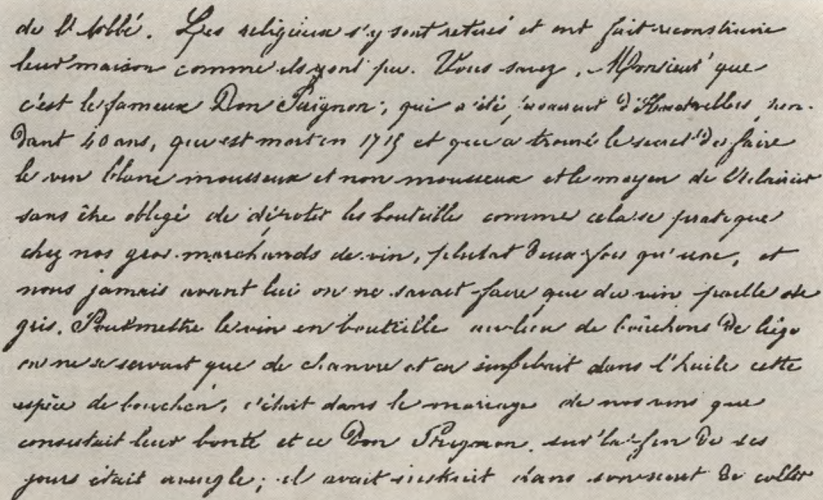 de l'abbé. Les religieux s'y sont retirés et ont fait reconstruire
leur maison comme ils y ont pu. Vous savez, Monsieur que
c'est le fameux Don Pérignon, qui a été procureur d'Hautvillers, pen-
dant 40 ans, qui est mort en 1715 et qui a trouvé le secret de faire
le vin blanc mousseux et non mousseux et le moyen de l'éclaircir
sans être obligé de dépoter les bouteille comme cela se pratique
chez nos gros marchands de vin, plutot deux fois qu'une, et
nous jamais avant lui on ne savait faire que du vin paille ou
gris. Pour mettre le vin en bouteille au lieu de bouchons de liége
on ne se servait que de chanvre et on imbibait dans l'huile cette
espèce de bouchon, c'était dans le mariage de nos vins que
consistait leur bonté et ce Don Pérignon sur la fin de ses
jours était aveugle; il avait instruit dans son secret de coller